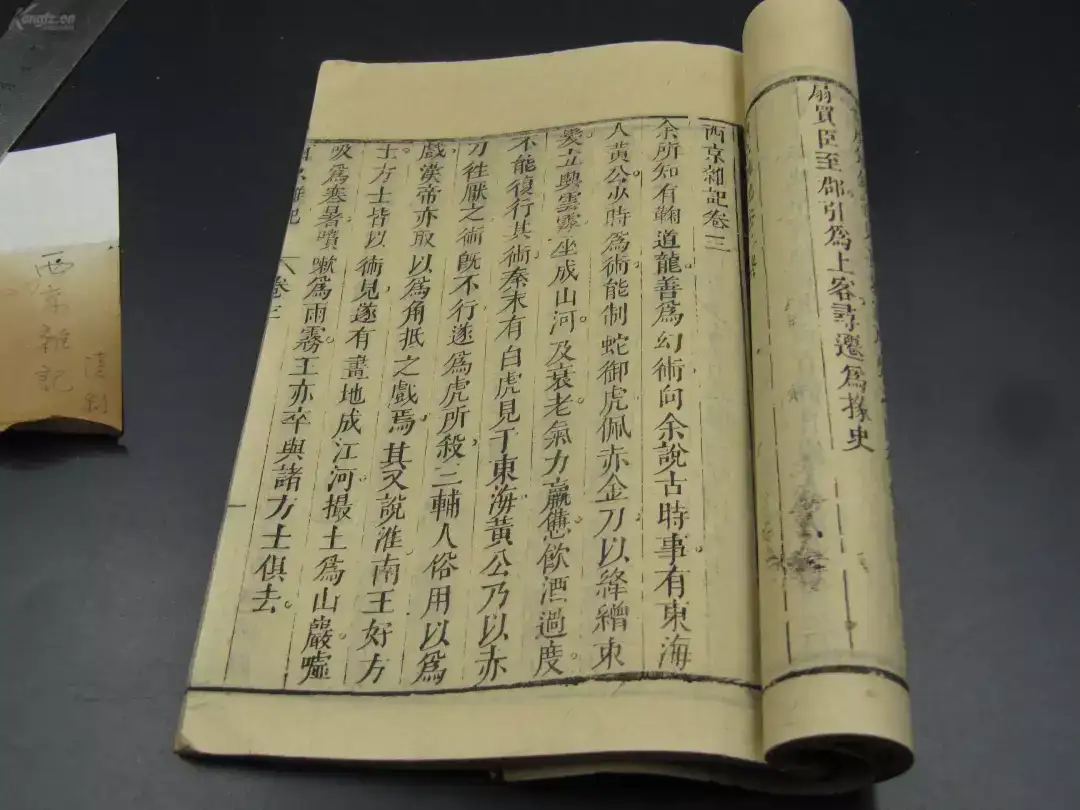 扇買臣至郡引爲上客尋遷爲掾史
西京雜記卷三
余所知有鞠道龍善爲幻術向余說古時事。有東海
人黃公少時爲術能制蛇御虎佩赤金刀以絳繒束
髮立興雲霧坐成山河。及衰老氣力羸憊飲酒過度。
不能復行其術。秦末有白虎見于東海。黃公乃以赤
刀往厭之術旣不行遂爲虎所殺。三輔人俗用以爲
戲漢帝亦取以爲角抵之戲焉。其又說淮南王好方
士。方士皆以術見。遂有畫地成江河。撮土爲山巖。噓
吸爲寒暑噴嗽爲雨霧。王亦卒與諸方士俱去。
西京雜記
卷三
西京雜記
清刻
Kongfz.cn